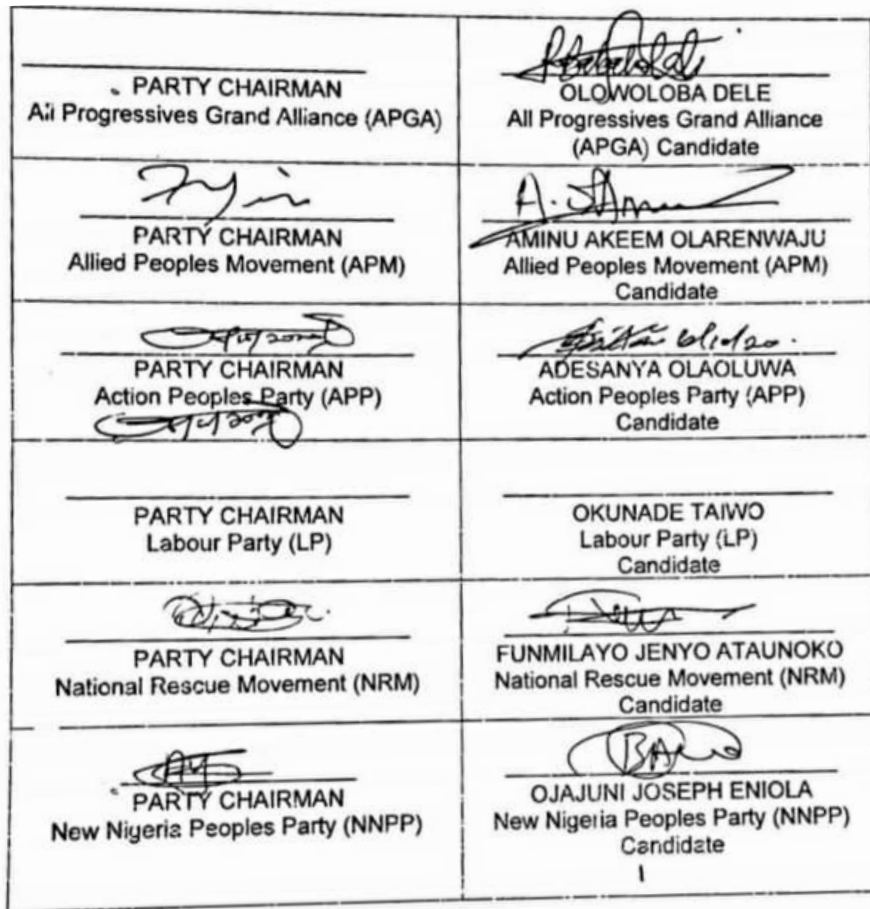 PARTY CHAIRMAN
All Progressives Grand Alliance (APGA)
OLOWOLOBA DELE
All Progressives Grand Alliance
(APGA) Candidate
PARTY CHAIRMAN
Allied Peoples Movement (APM)
AMINU AKEEM OLARENWAJU
Allied Peoples Movement (APM)
Candidate
PARTY CHAIRMAN
Action Peoples Party (APP)
ADESANYA OLAOLUWA
Action Peoples Party (APP)
Candidate
PARTY CHAIRMAN
Labour Party (LP)
OKUNADE TAIWO
Labour Party (LP)
Candidate
PARTY CHAIRMAN
National Rescue Movement (NRM)
FUNMILAYO JENYO ATAUNOKO
National Rescue Movement (NRM)
Candidate
PARTY CHAIRMAN
New Nigeria Peoples Party (NNPP)
OJAJUNI JOSEPH ENIOLA
New Nigeria Peoples Party (NNPP)
Candidate